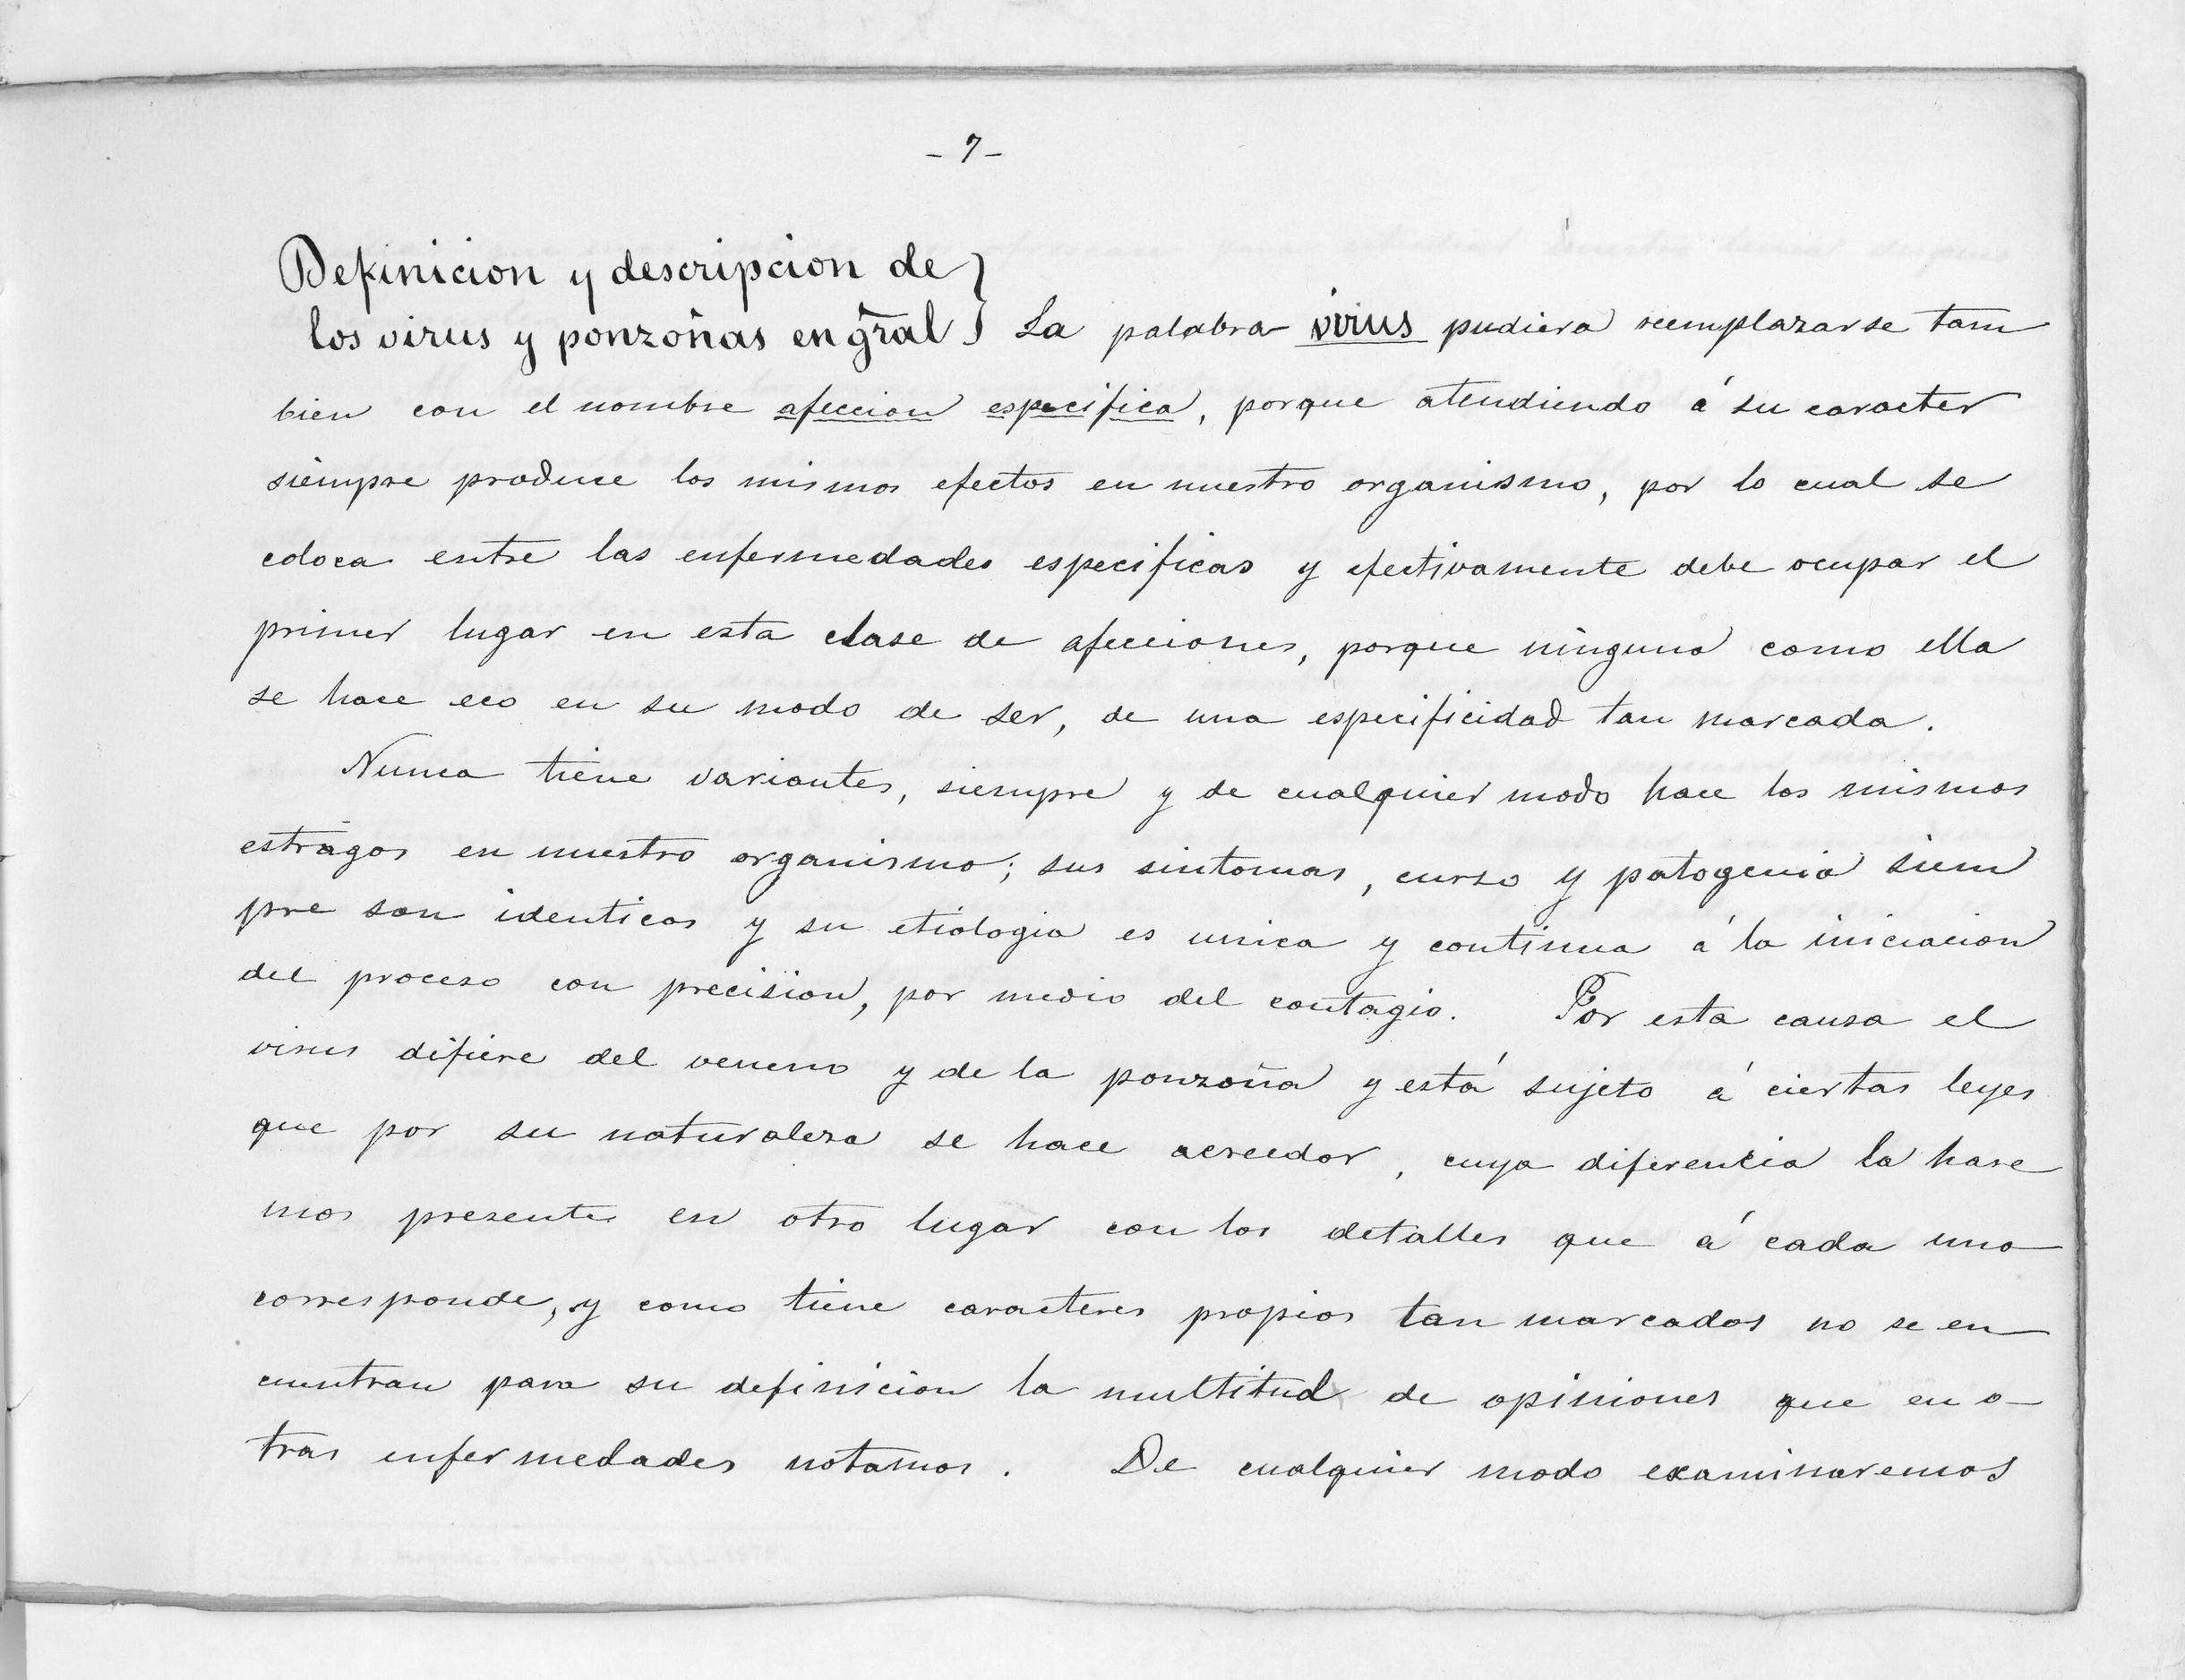 - 7 -
Definicion y descripcion de }
los virus y ponzoñas en gral } La palabra virus pudiera reemplazarse tam
bien con el nombre afeccion especifica, porque atendiendo á su caracter
siempre produce los mismos efectos en nuestro organismo, por lo cual se
coloca entre las enfermedades especificas y efectivamente debe ocupar el
primer lugar en esta clase de afecciones, porque ninguna como ella
se hace eco en su modo de ser, de una especificidad tan marcada.
Nunca tiene variantes, siempre y de cualquier modo hace los mismos
estragos en nuestro organismo; sus sintomas, curso y patogenia siem
pre son identicos y su etiologia es unica y continua á la iniciacion
del proceso con precision, por medio del contagio. Por esta causa el
virus difiere del veneno y de la ponzoña y está sujeto á ciertas leyes
que por su naturaleza se hace acreedor, cuya diferencia la hare
mos presente en otro lugar con los detalles que á cada uno
corresponde, y como tiene caracteres propios tan marcados no se en
cuentran para su definicion la multitud de opiniones que en o-
tras enfermedades notamos. De cualquier modo examinaremos